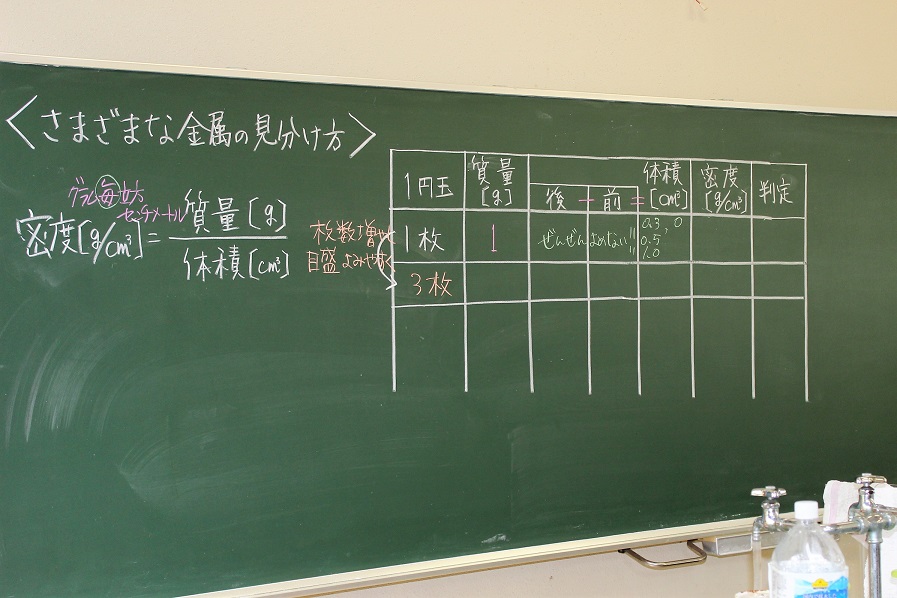 〈さまざまな金属の見分け方〉
グラム毎立方
センチメートル
密度[g/cm³]=質量[g]
体積[cm³]
枚数増やし
目盛よみやすく
1円玉 質量[g] 後-前=体積[cm³] 密度[g/cm³] 判定
1枚 1 ぜんぜんよめない!! 0.3, 0
0.5
1.0
3枚